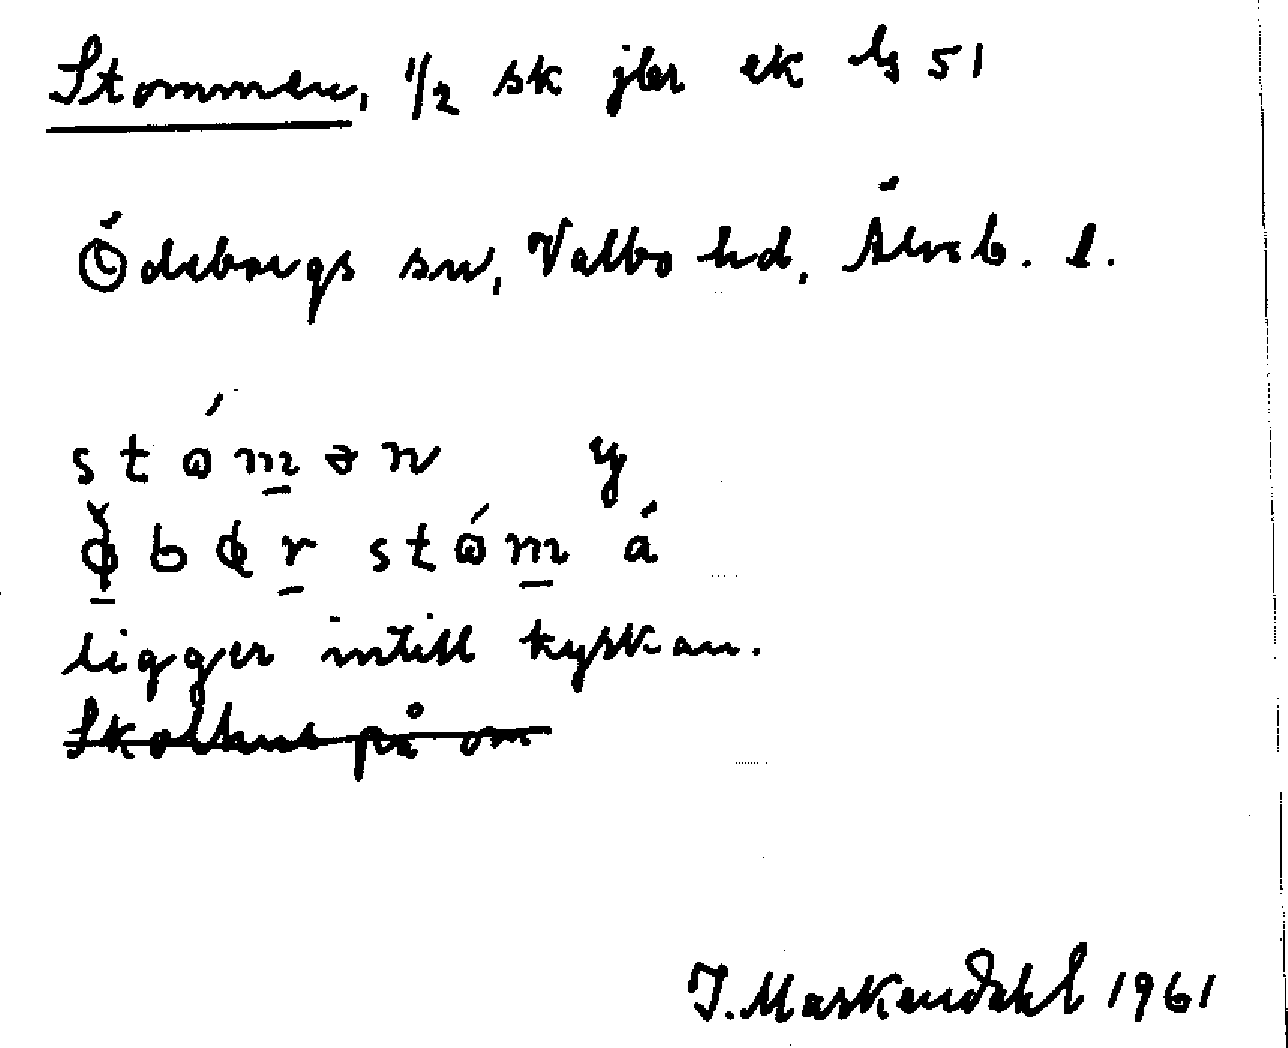 Stommen, 1/2 sk jbr ek bs 51
Ödeborgs sn, Valbo hd, Älvsb. l.
stómən y
stóm á
ligger intill kyrkan.
på om
J. Maskendahl 1961